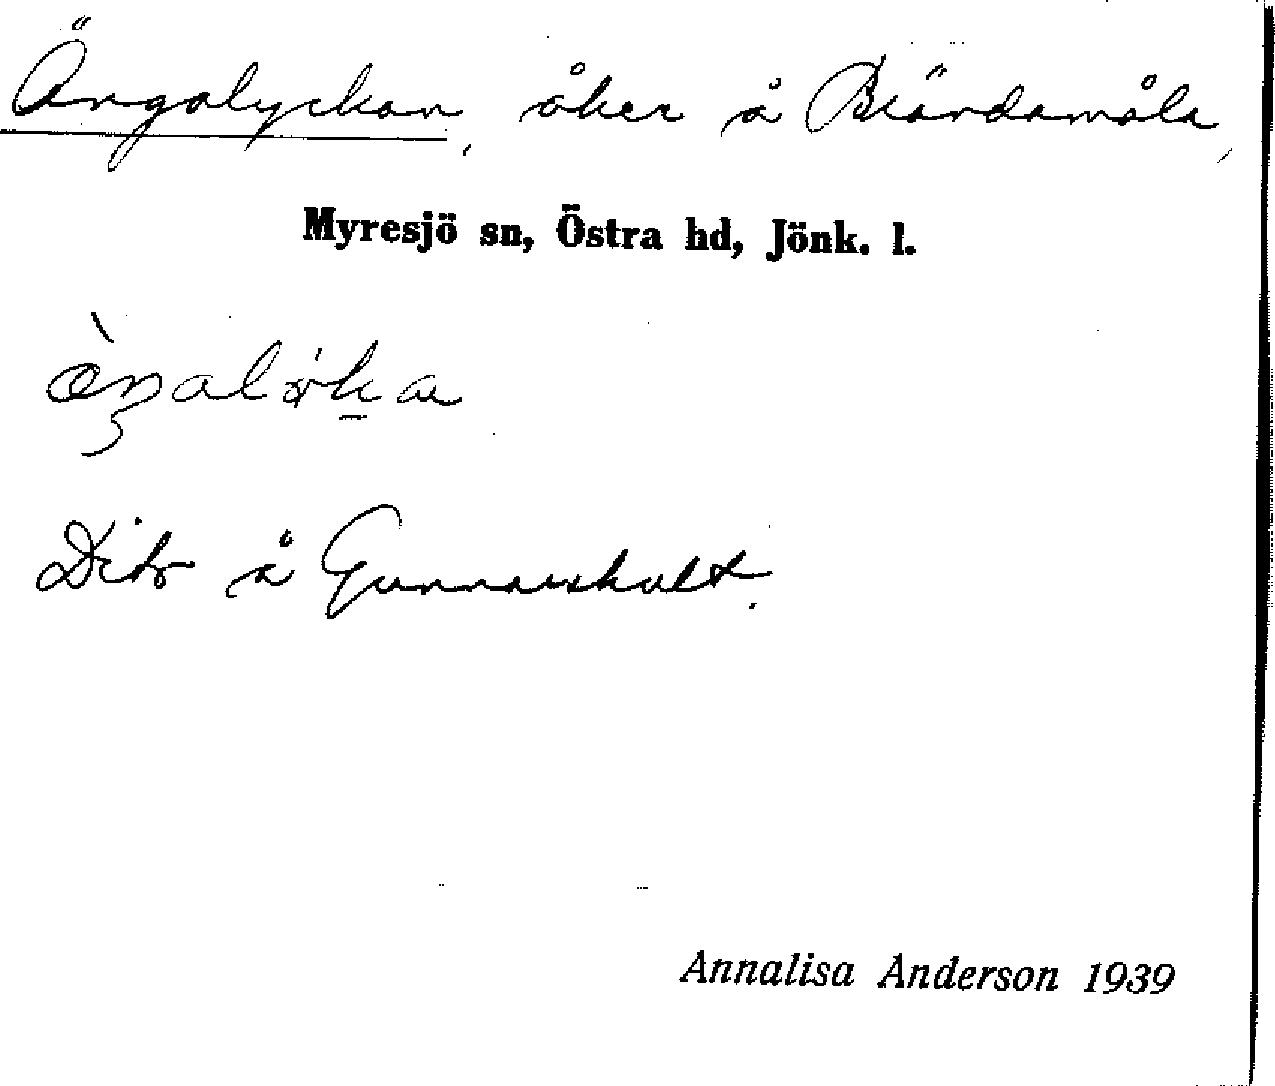 Ängalyckan, åker å Brändamåla,
Myresjö sn, Östra hd, Jönk. l.
Dito å Gunnarshult.
Annalisa Anderson 1939